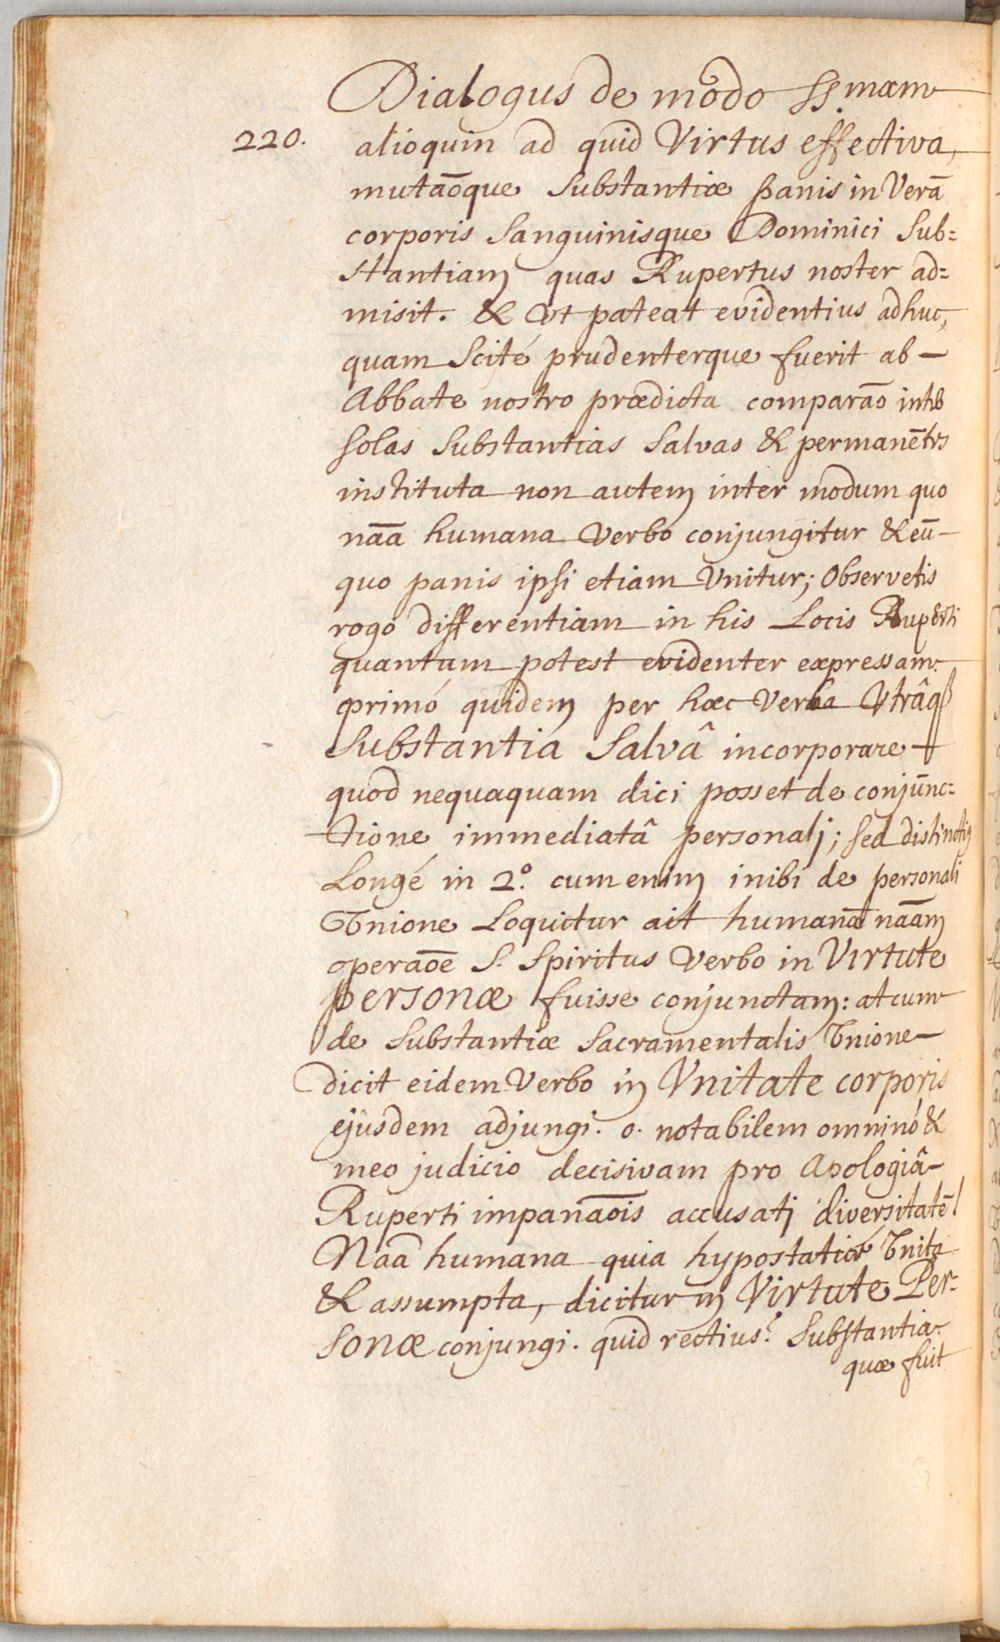 Dialogus de modo SS.mæm
220. alioquin ad quid Virtus effectiva,
mutãoque Substantiæ panis in Verã
corporis Sanguinisque Dominici Sub=
stantiam quas Rupertus noster ad=
misit. & Vt pateat evidentius adhuc,
quam Scité prudenterque fuerit ab —
Abbate nostro prædicta comparaõ inter
solas Substantias Salvas & permanẽtes
instituta non autem inter modum quo
naãa humana Verbo conjungitur & eũ —
quo panis ipsi etiam Vnitur; Observetis
rogo differentiam in his Locis Ruperti
quantum potest evidenter expressam.
primó quidem per hæc Verba Vtrâq
Substantia Salvâ incorporare —
quod nequaquam dici posset de conjũnc=
tione immediatâ personali; sed distinctiq
Longé in 2º. cum enim inibi de personali
Vnione Loquitur ait humanã naãm
operaõe S. Spiritus Verbo in Virtute
personæ fuisse conjunctam: at cum
de Substantiæ Sacramentalis Vnione —
dicit eidem Verbo in Vnitate corporis
ejusdem adjungi. o. notabilem omninó &
meo judicio decisivam pro Apologiâ
Ruperti impanaõis accusati diversitatẽ!
Naã humana quia hypostaticé Vnita
& assumpta, dicitur in Virtute Per=
sonæ conjungi. quid rectius? Substantia
quæ fuit